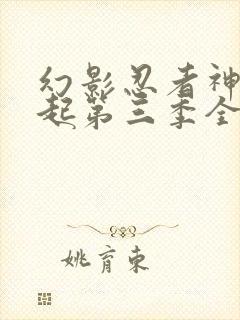 幻影忍者神
起第三季全
姚育东